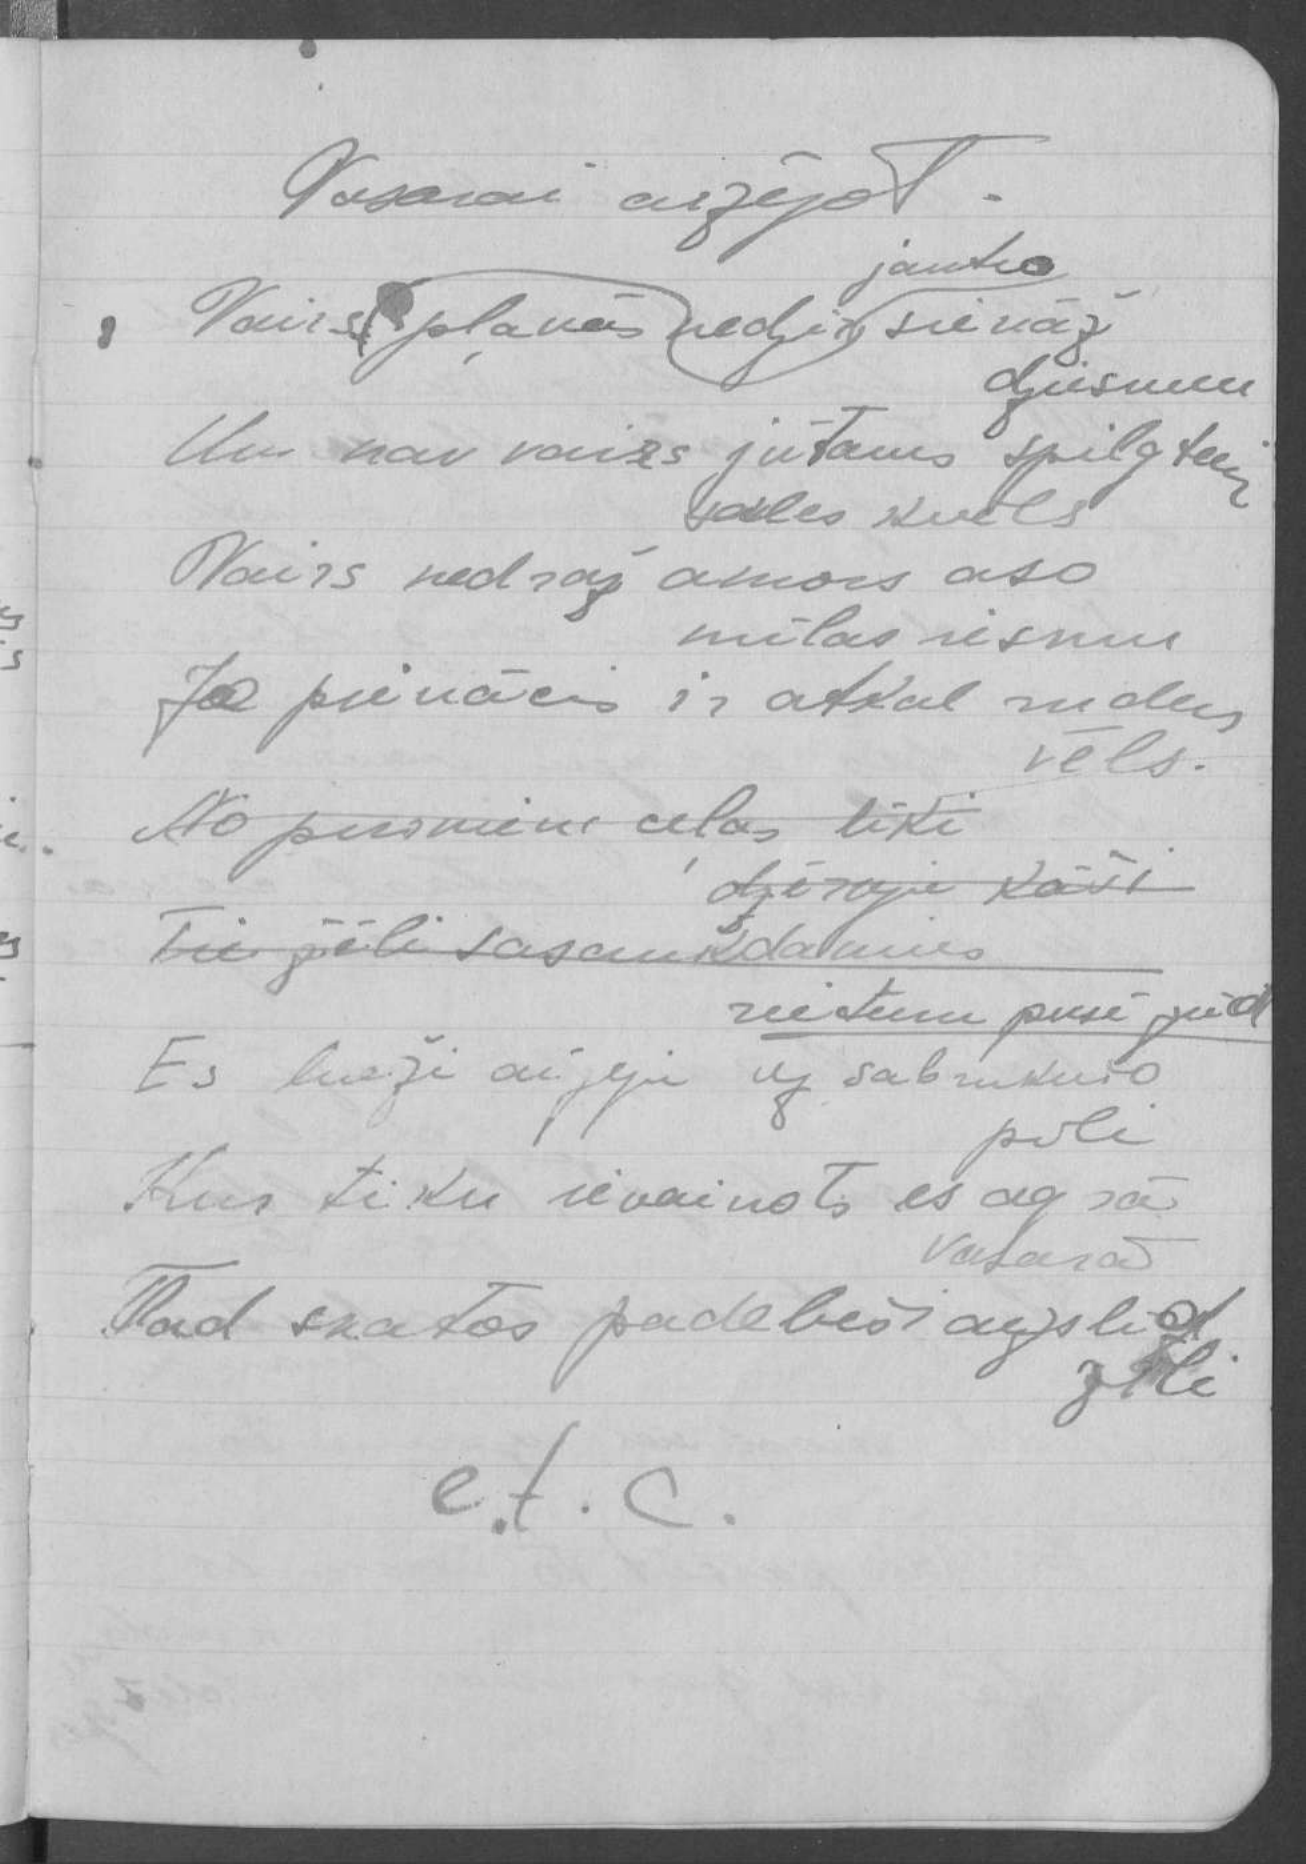 Vasarai aizejot.
jautro
Vairs pļavās nedzir sienāž
dziesmu
Un nav vairs jūtams spilgtais
saules kvēls
Vairs nedraž amors aso
mīlas
Jo pienācis ir atkal rudens
vēls.
No purviem ceļas tikti
dzērvju kāši
Tie žēli sasaukdamies
rietumu pusē zūd
Es bieži aizeju uz sabrukušo
poli
Kur tiku ievainots es agrā
vasarā
Tad skatos padebeši aizslīd
zili
e.t.c.